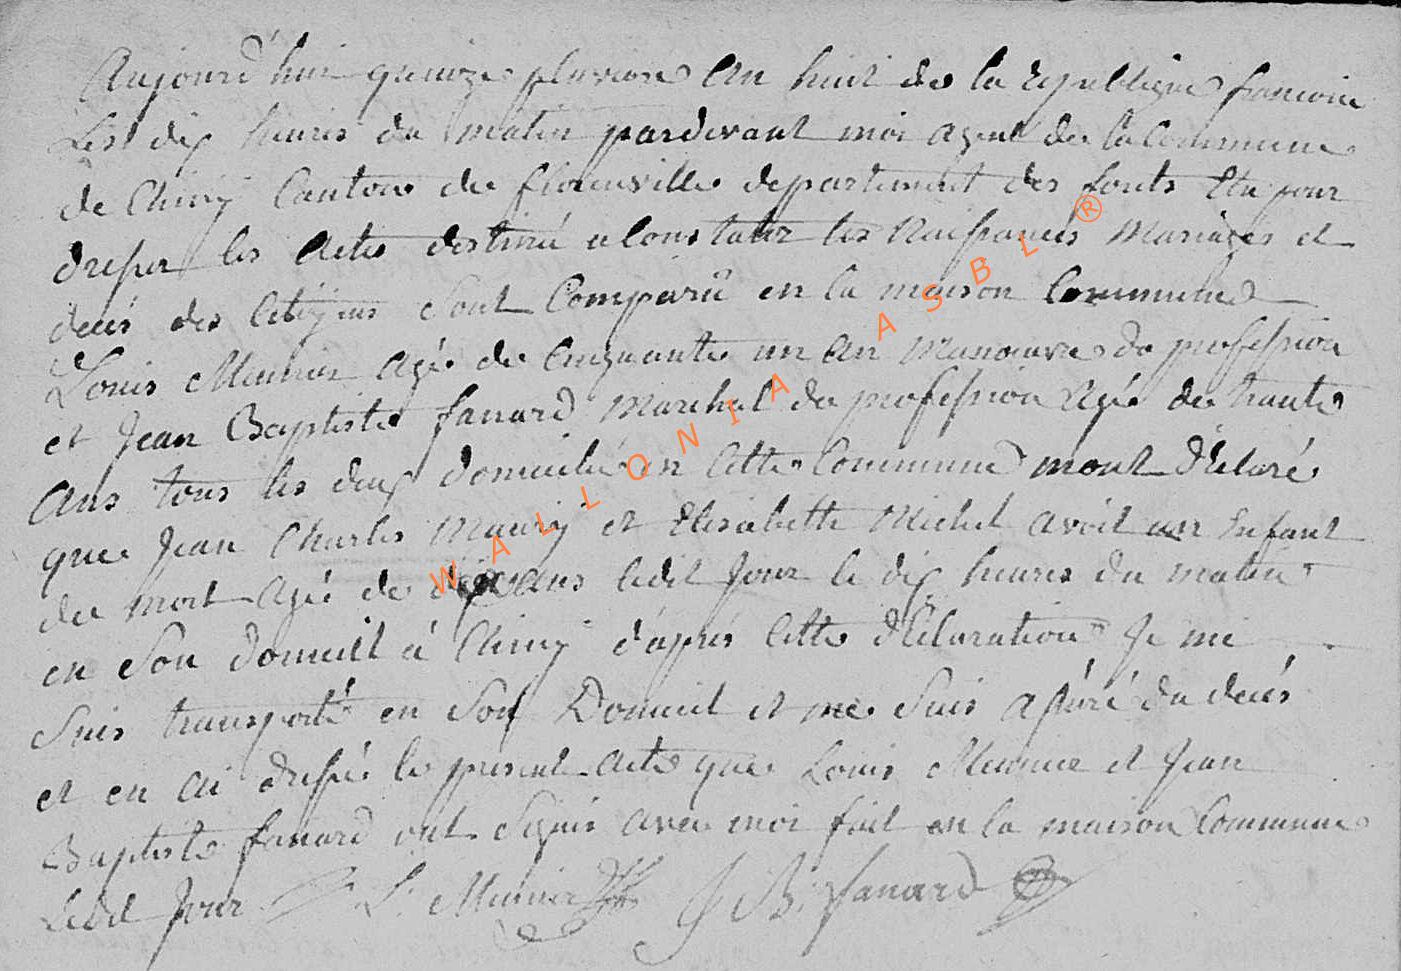 Aujourd'hui quinze pluviose an huit de la republique francoise
Les dix heures du matin pardevant moi agent de la Commune
de Chiny Canton de florenville departement des forets Elu pour
dresser les Actes destiné a Constater les Naissances Mariages et
decés des Citoyens Sont Comparû en la maison Commune
Louis Meunier Agé de Cinquante un an Manoeuvre de profession
et Jean Baptiste fanard Marchal de profession Agé de trante
Ans tous les deux domicilié en Cette Commune mont déClaré
que Jean Charles Maury et Elisabette Michel avoit un Enfant
de mort Agé de ans ledit Jour le dix heures du matin
en Son domicill à Chiny d'aprés Cette déClaration Je me
Suis transporté en Son Domicil et me Suis assuré du decés
et en ai dressé le present Acte que Louis Meunier et Jean
Baptiste fanard ont Signés avec moi fait en la maison Commune
Ledit Jour L. Meunier J B: fanard
WALLONIA ASBL ®